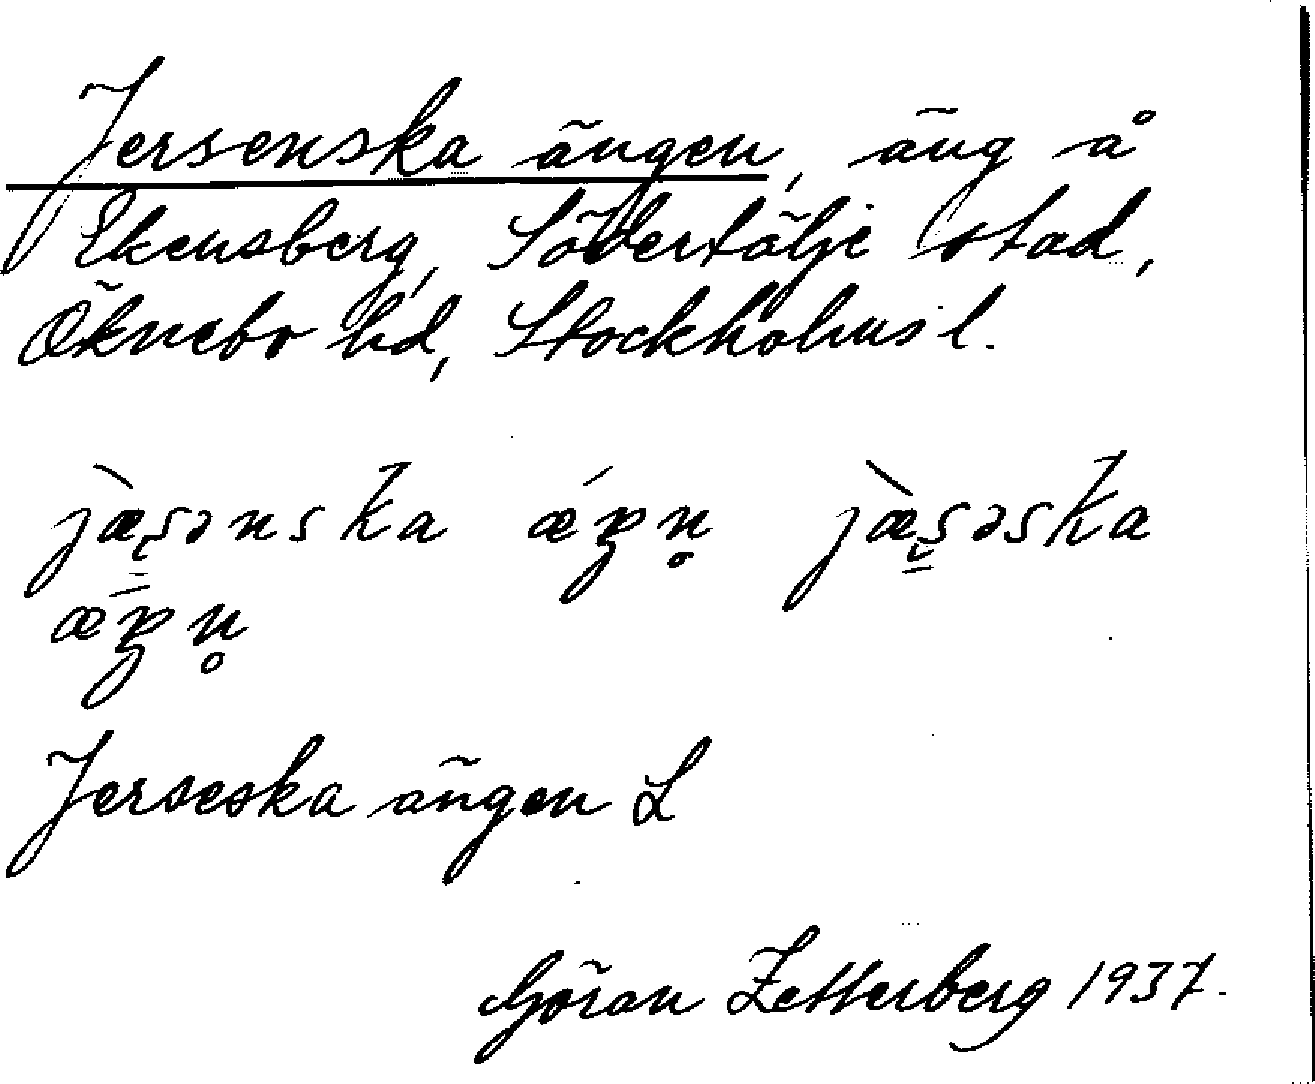 Jersenska ängen, äng å
Ekensberg, Södertälje stad,
Öknebo hd, Stockholms l.
jæ̀ʂənska ǽŋn̥ jæ̀ʂəska
ǽŋn̥
Jerseska ängen L
Göran Zetterberg 1937.